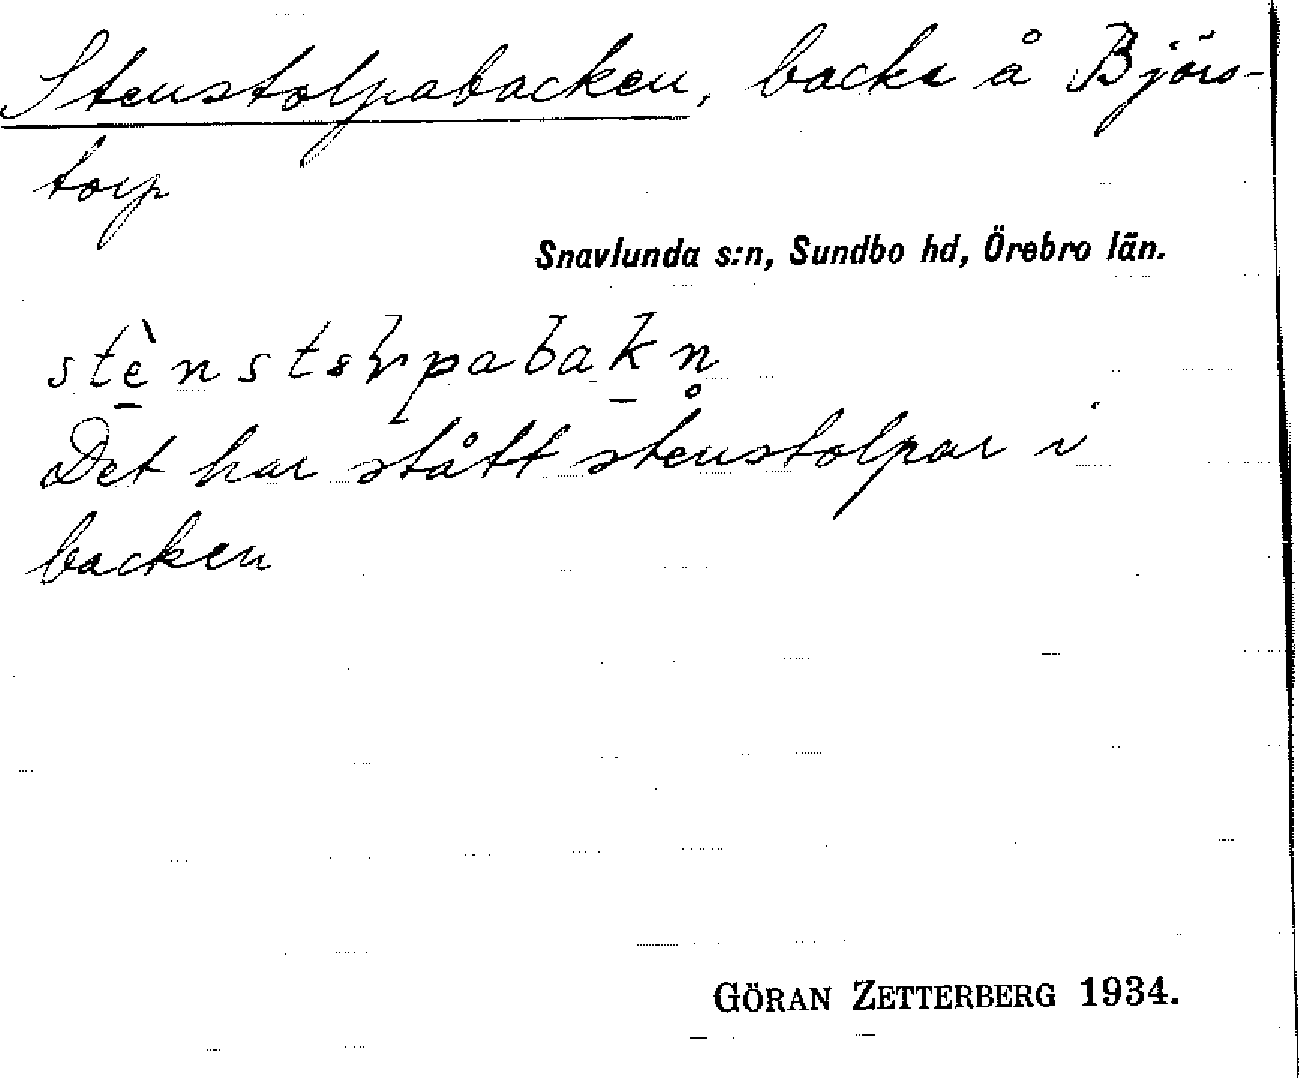 Stenstolpabacken, backe å Björs-
torp
Snavlunda s:n, Sundbo hd, Örebro län.
Det har stått stenstolpar i
backen
GÖRAN ZETTERBERG 1934.